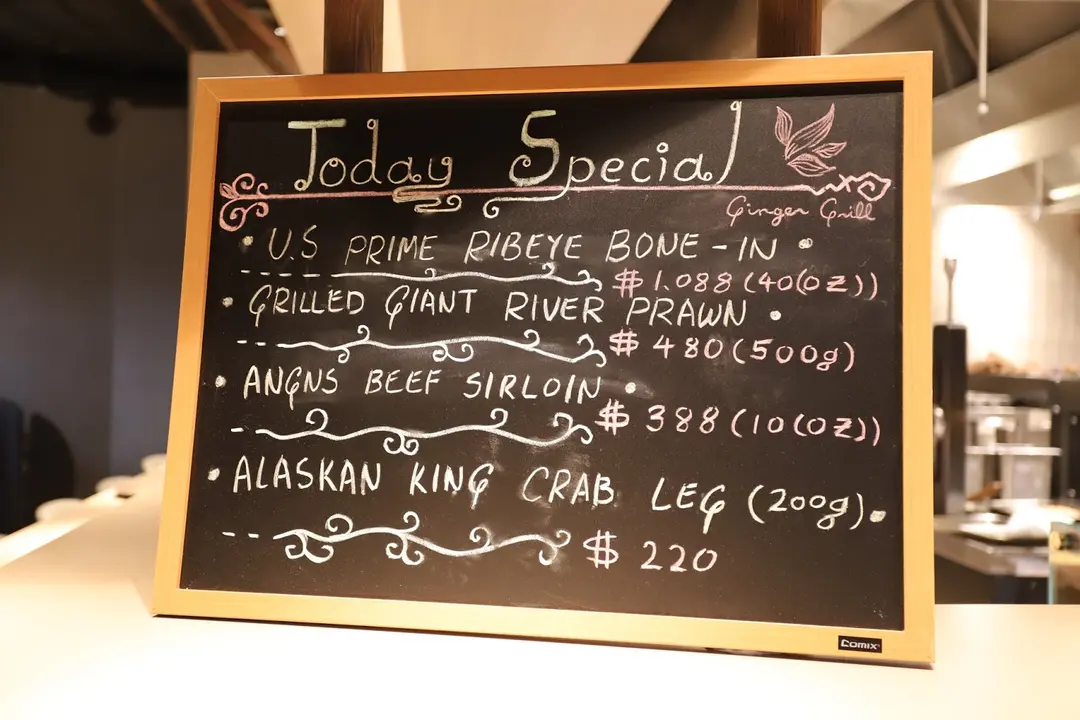 Today Special
Ginger Grill
• U.S PRIME RIBEYE BONE-IN •
$ 1.088 (40(oz))
• GRILLED GIANT RIVER PRAWN •
$ 480 (500g)
• ANGNS BEEF SIRLOIN •
$ 388 (10(oz))
• ALASKAN KING CRAB LEG (200g) •
$ 220
Comix